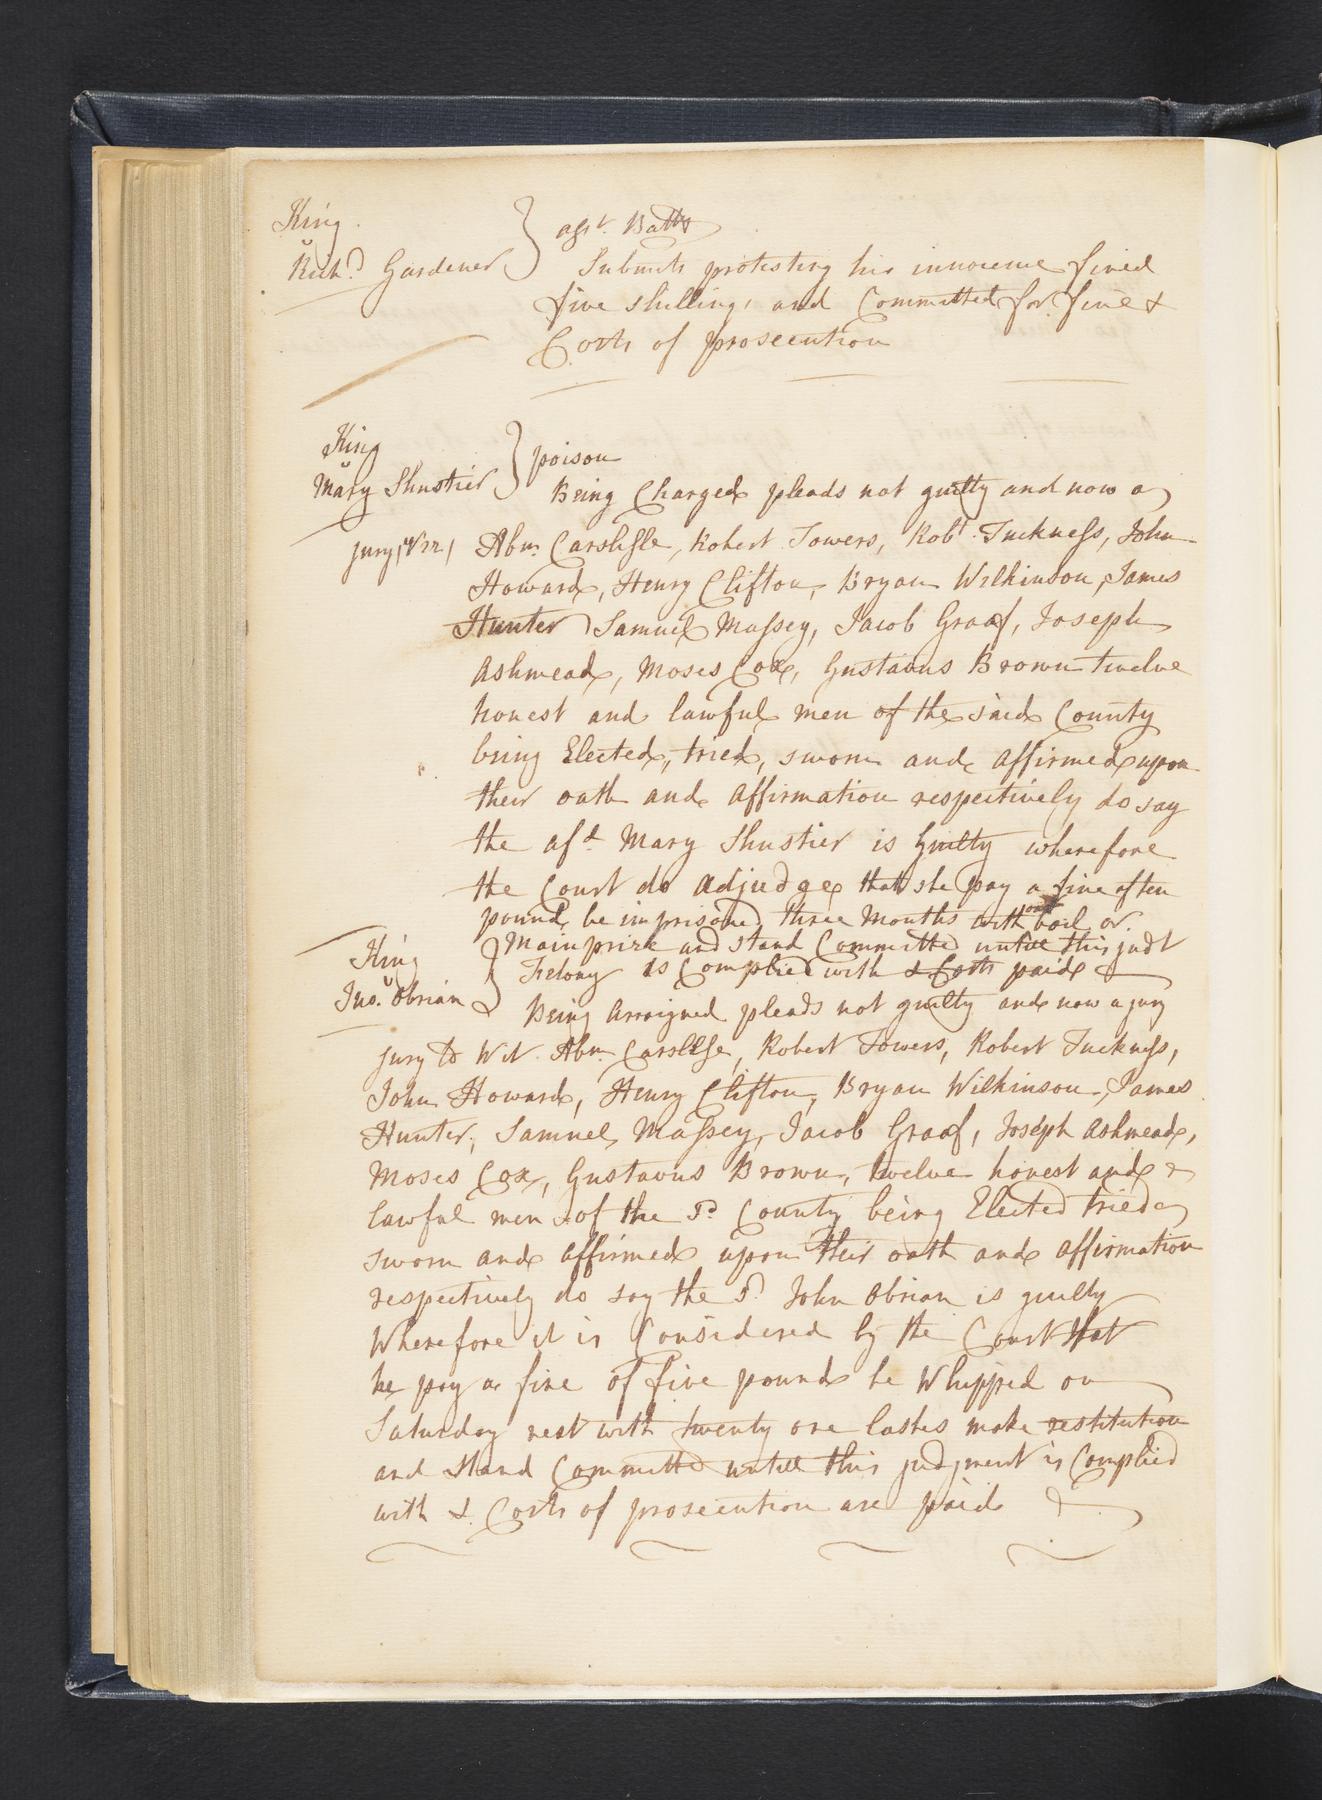 King
v
Rich.d Gardener } ass.t Batty
Submits protesting his innocence fined
five shillings and Committed for fine &
Costs of prosecution
King
v
Mary Shustier } poison
Being Charged pleads not guilty and now a
jury, Viz., Abm. Carslisle, Robert Towers, Robt. Tuckness, John
Howard, Henry Clifton, Bryan Wilkinson, James
Hunter Samuel Massey, Jacob Graaf, Joseph
Ashmead, Moses Cox, Gustavus Brown twelve
honest and lawful men of the said County
being Elected, tried, sworn and affirmed upon
their oath and affirmation respectively do say
the afd. Mary Shustier is Guilty wherefore
the Court do adjudge that she pay a fine of ten
pound, be imprisoned three Months without bail or
Mainprize and stand Committed untill this judt
is Complied with & Costs paid
King
v
Jno. Obrian } Felony
Being Arraigned pleads not guilty and now a jury
jury to Wit Abm. Carslisle, Robert Towers, Robert Tuckness,
John Howard, Henry Clifton, Bryan Wilkinson, James
Hunter, Samuel Massey, Jacob Graaf, Joseph Ashmead,
Moses Cox, Gustavus Brown, twelve honest and
lawful men of the sd. County being Elected tried
sworn and affirmed upon their oath and affirmation
respectively do say the sd. John Obrian is guilty
Wherefore it is Considered by the Court that
he pay a fine of five pounds be Whipped on
Saturday next with twenty one lashes make restitution
and stand Committed untill this judgment is Complied
with & Costs of prosecution are paid &